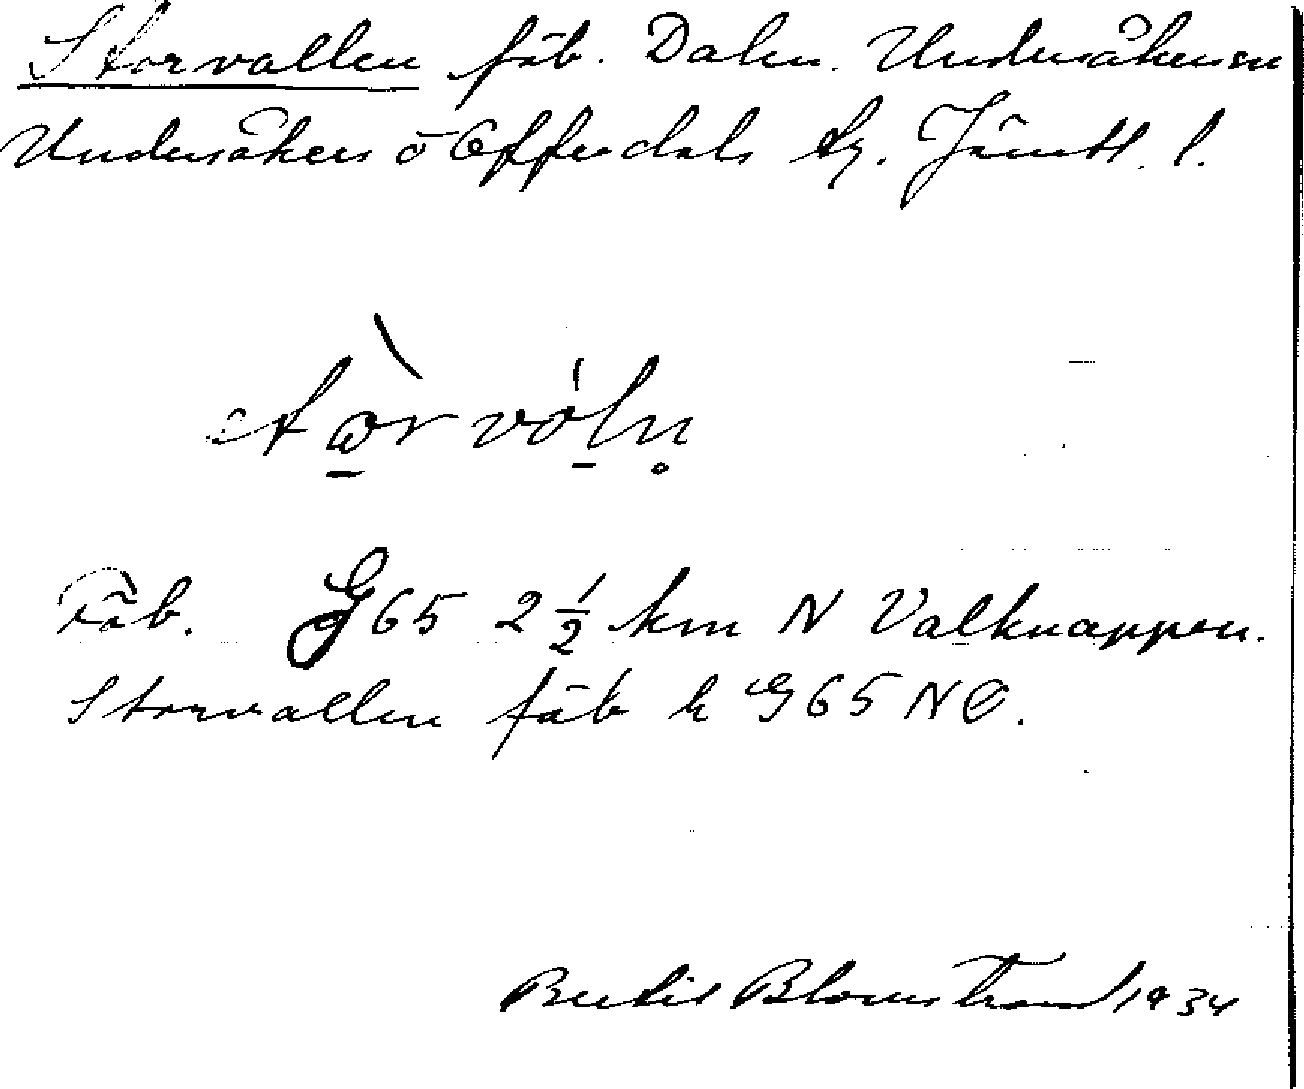 Storvallen fäb. Dalen. Undersåkers sn
Undersåkers o Offerdals tg. Jämtl. l.
Fäb. G65 2 ½ km N Valknappen.
Storvallen fäb k G65 NO.
Bertil Blomstrand 1934